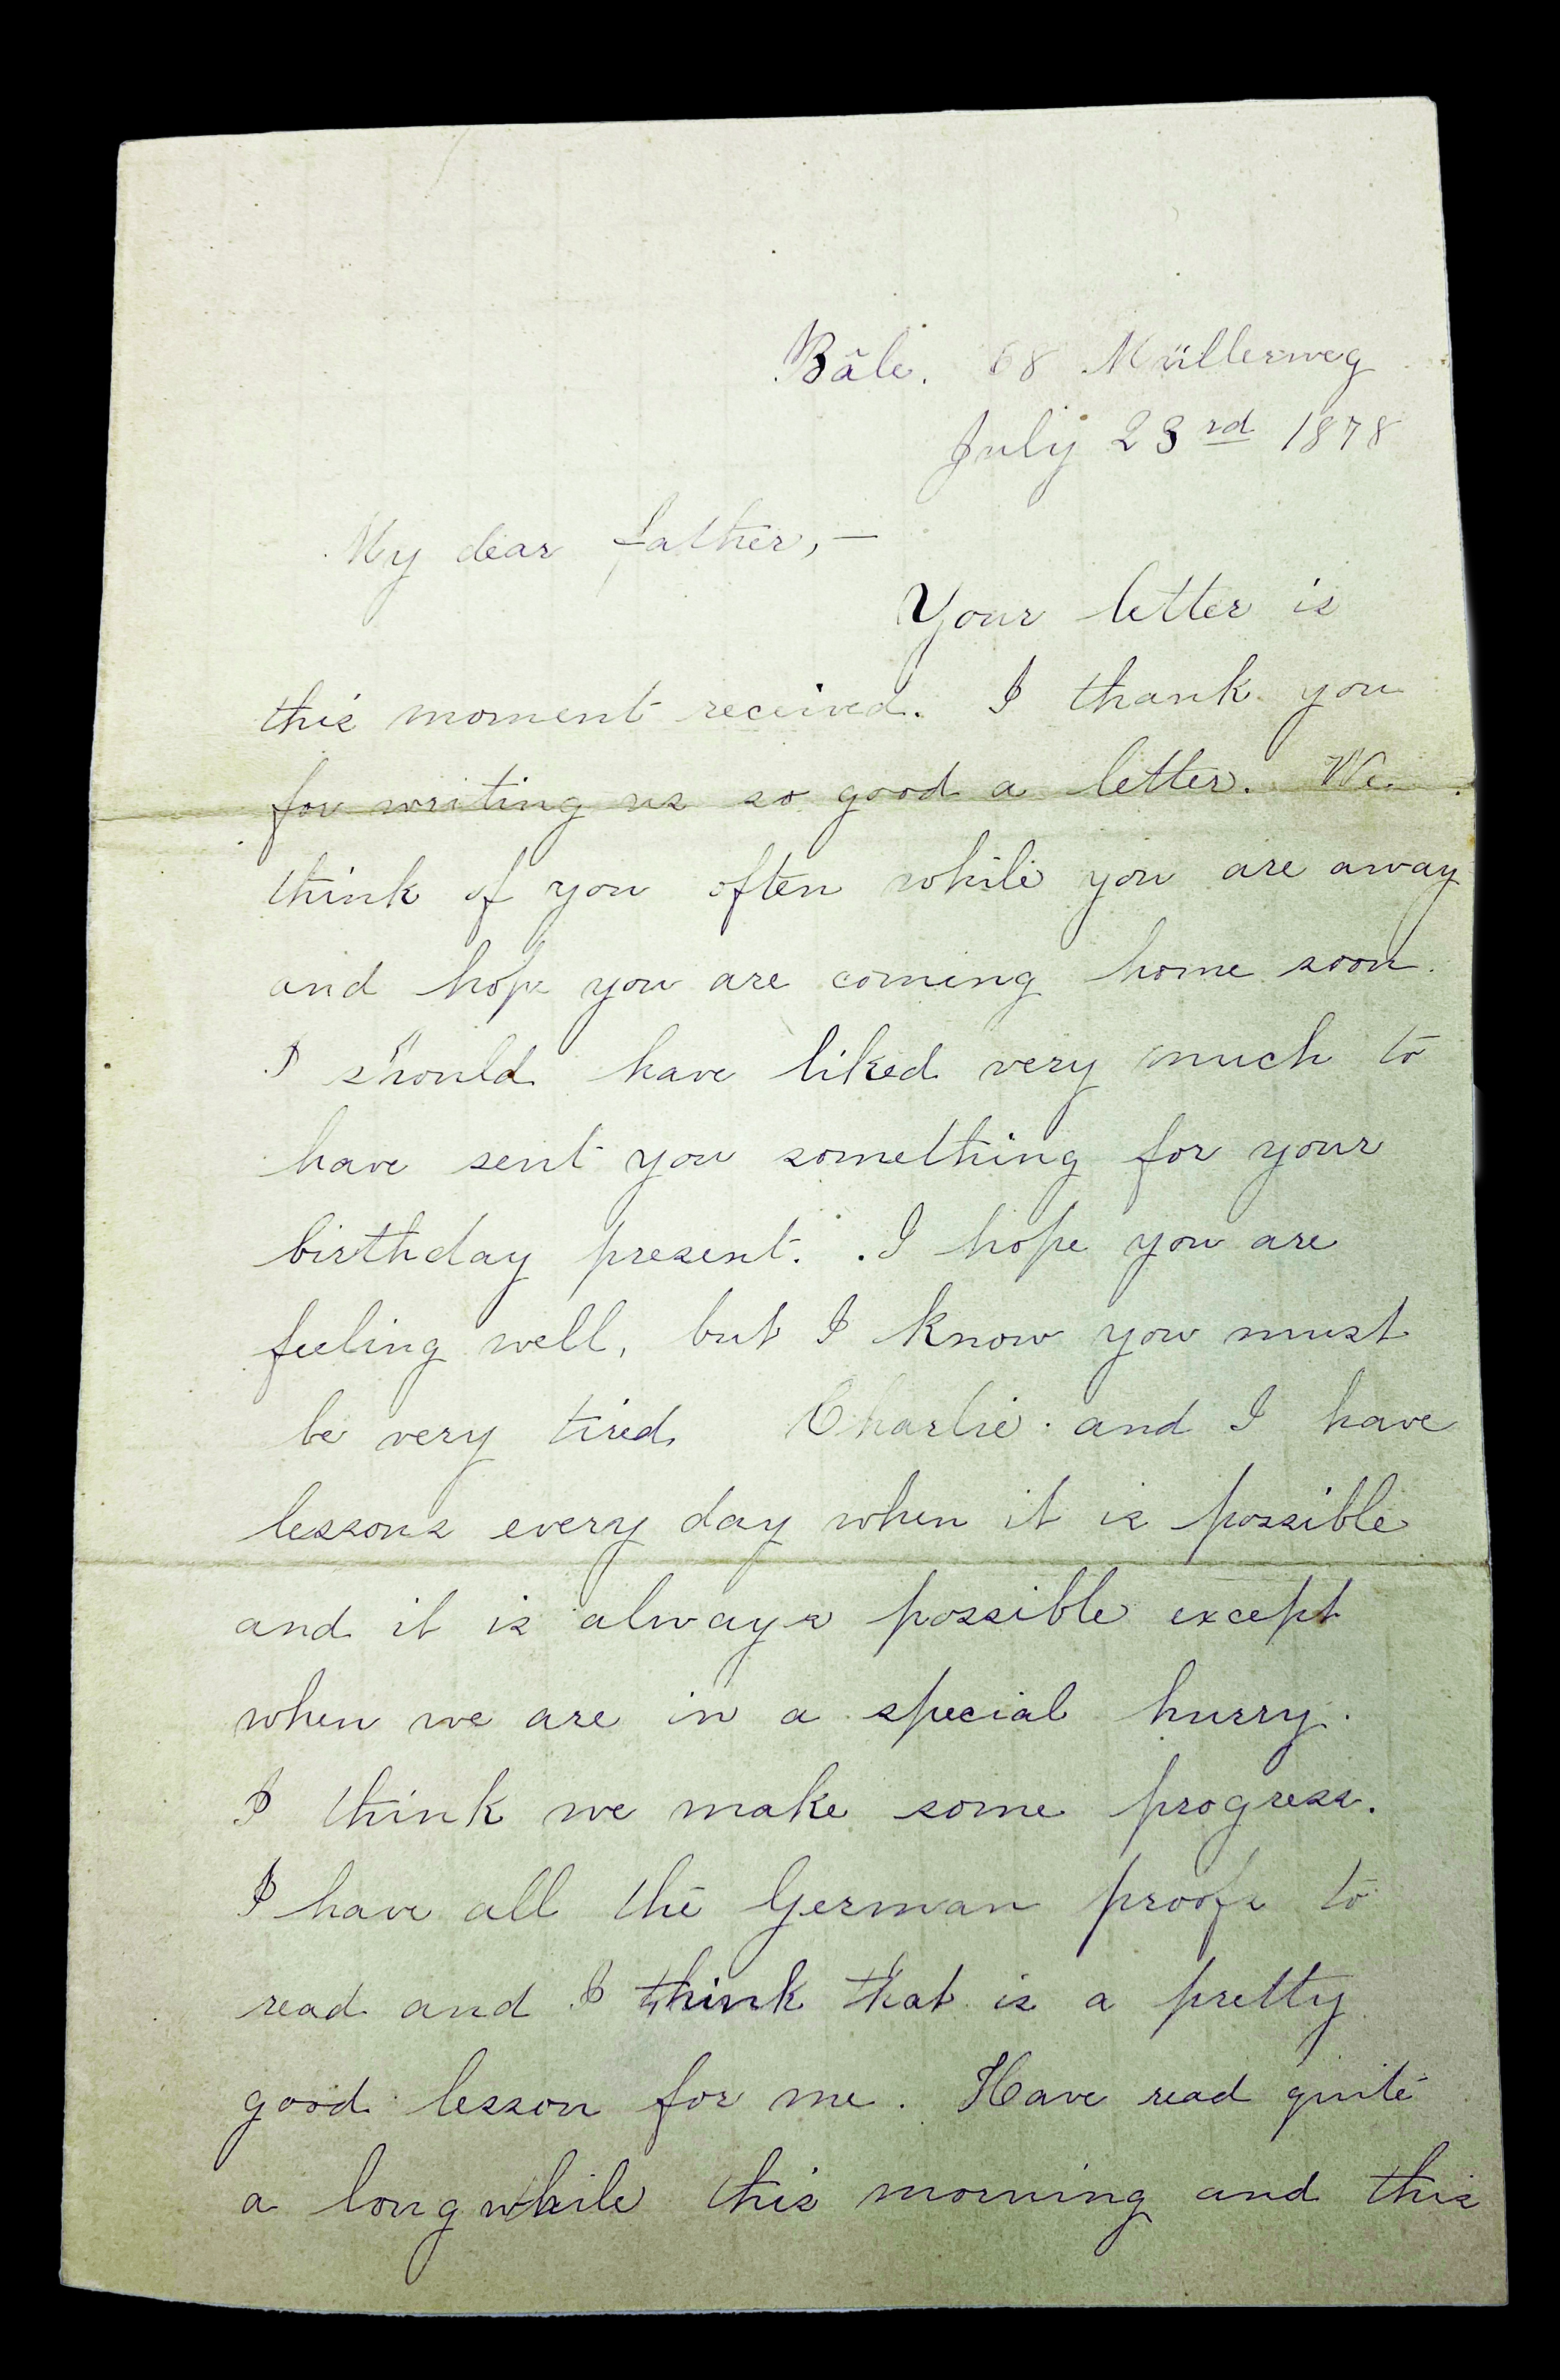 Bâle. 68 Müllerweg
July 23rd 1878
My dear father,—
Your letter is
this moment received. I thank you
for writing us so good a letter. We
think of you often while you are away
and hope you are coming home soon.
I should have liked very much to
have sent you something for your
birthday present. I hope you are
feeling well, but I know you must
be very tired. Charlie and I have
lessons every day when it is possible
and it is always possible except
when we are in a special hurry.
I think we make some progress.
I have all the German proofs to
read and I think that is a pretty
good lesson for me. Have read quite
a long while this morning and this